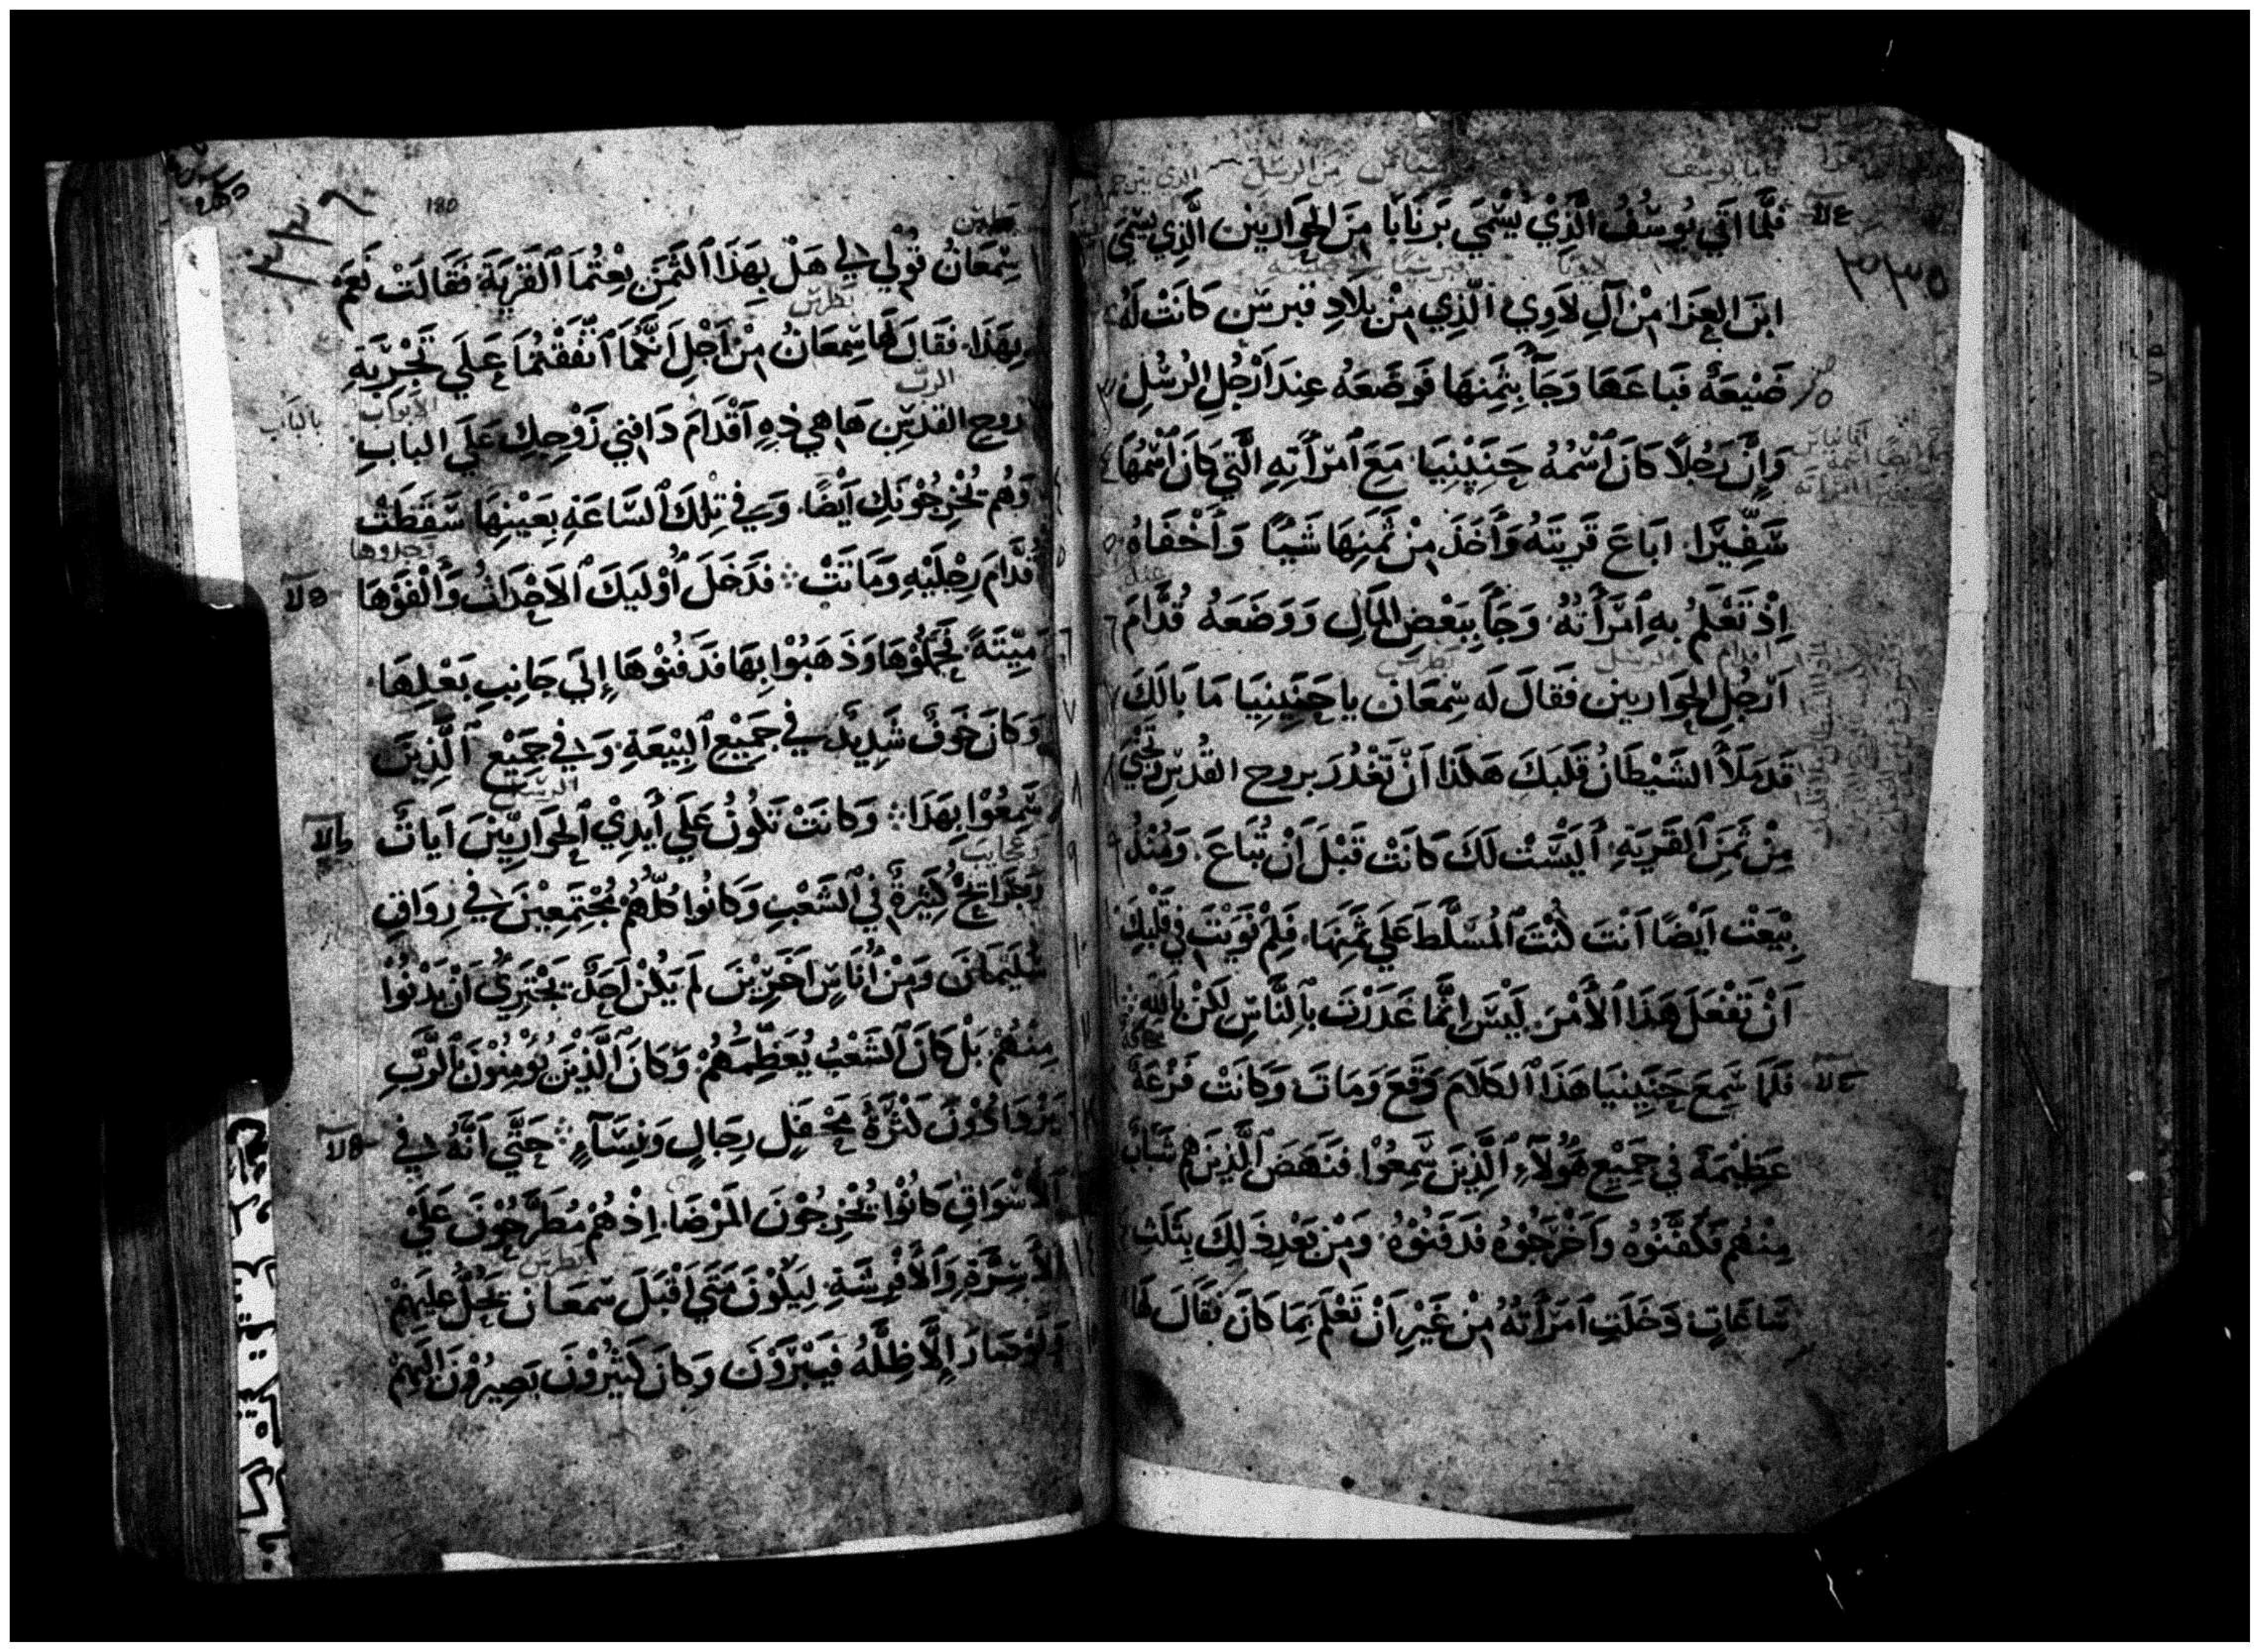 فَلَّمَا اتَي يُوسُفُ الَّذِيْ يُسْمَي بَرنَابَا مِنَ الحَوَاريين الَّذِي يسَمي
ابن العزا مِنْ آلِ لاَوِي الَّذِي مِنْ بِلاَدِ قبرس كَانَت لَهُ
ضَيْعَهٌ فَباعَهَا وَجَآ بِثَمِنهَا فَوضَعَهُ عِندَ اَرْجُلِ الرُسُلِ
وَإِنَّ رَجُلاً كَانَ ٱسْمُهُ حَنَنِيَا مَعَ ٱمْرَأَتِهِ الَّتِي كَانَ ٱسْمُهَا
سَّفِيَرَا اَبَاعَ قَريَتَهُ وَأَخَذَ مِنْ ثَمَنِهَا شَيًا وَأَخْفَاهُ
اِذْ تَعْلَمُ بهِ اَمَرَأَتُهُ وَجَآ بِبَعْضِ المَالِ وَوَضَعَهُ قُدَّامَ
اَرْجُلِ الحِوَاريين فَقَالَ لَه سِمعَان يا حَنَنِيَا مَا بَالَكَ
قَد مَلَاَ الشَيْطَانُ قَلبَكَ هَكَذا اَنْ تَغْدُرَ بروح القُدسِ وَتخْبِي
مِنْ ثَمَنِ القَريَهِ أَليْسَتْ لَكَ كَانَتْ قَبْلَ اَنْ تُبَاعَ وَمُنْذُ
بِيْعَتْ اَيْضًا اَنتَ كُنْتَ المُسَلَّطَ عَلَي ثَمَنِهَا فَلِمْ نَوَيْتَ فِي قَلبِكَ
اَنْ تَفْعَلَ هَذَا الأَمْرَ لَيْسَ اِنَّمَا غَدَرْتَ بِالنَّاسِ لَكِنْ بِاللهِ
فَلَمَا سَمِعَ حَنَنِيَا هَذَا الكَلاَمَ وَقَعَ وَمَاتَ وَكَانَتْ فَزْعَهٌ
عَظِيْمَهٌ فِي جَمِيْعِ هَؤُلآءِ الَّذِيَنَ سَّمِعُوْا فنَهَضَ الَّذِيَن هم شَبَّانٌ
مِنْهُم فكَفَّنُوهُ واَخْرَجُوْهُ فدَفَنُوْهُ وَمِنْ بَعْدِ ذَلِكَ بِثَلَثِ
سَاعَاتٍ دَخَلَتِ اَمَرَأَتُهُ مِنْ غَيْرِ اَنْ تَعْلَمَ بِمَا كَانَ فَقَالَ لَهَا
١٨٠
سِمْعَانُ قُوْلِي لِي هَلْ بِهَذَا الثَمَنِ بِعْتُمَا القَرْيَةَ فَقَالَتْ نَعَم
بِهَذَا فَقَالَ لَهَا سِمعَانُ مِنْ اَجْلِ اَنَّكُمَا اَتّفَقْتُمَا عَلَي تَجْرِبَةِ
رُوحِ القُدسِ هَا هِي ذِهِ اَقْدَامَ دَافِنِي زَوْجِكِ عَلَي البابِ
وَهُم يُخْرِجُوْنَكِ اَيْضًا وَفِي تِلْكَ السَّاعَهِ بِعَيْنِهَا سَقَطَتْ
قُدَّامَ رِجْلَيْهِ وَمَاتَتْ فدَخَلَ اوْلَيَكَ الاَحْدَاثُ وَأَلْفَوْهَا
مَيّتَهً فحَمَلُوْهَا وَذَهَبُوْا بِهَا فدَفَنُوْهَا إِلَي جَانِبِ بَعْلِهَا
وَكَانَ خَوفٌ شَدِيدٌ فِي جَمِيْعِ البِيْعَةِ وَفِي جَمِيْعِ الَّذِيَنَ
سَّمِعُوْا بِهَذَا وَكَانَتْ تَكُونُ عَلَي أَيدِيْ الحَوَارِيّيَن اَيَاتٌ
وَجَرَايِحُ كَثِيْرَةٌ فِي الشَعْبِ وَكَانُوا كُلّهُمْ مُجْتَمِعِيْنَ فِي رِوَاقِ
سُلَيمَانَ وَمِنْ أُنَاسٍ اَخَرِيْنَ لَم يَكُنْ اَحَدٌ يَجْتَرِيُ اَنْ يَدْنُوْا
مِنهُمْ بَلْ كَانَ الشَعْبُ يُعَظِّمُهُمْ وَكَانَ الَّذِيْنَ يُؤمِنُوْنَ بِالرَّبِ
يَزْدَادُوْنَ كَثْرَةً مَحْفِل رِجَالٍ وَنِسَآءٍ حَتَّي اَنَّهُ فِي
الاَسْوَاقِ كَانُوْا يُخْرِجُوْنَ المَرْضَا اِذْ هُمْ مُطَرَّحُوْنَ عَلَيْ
الاَسِرَّةِ وَالأَفْرِشَةِ لِيَكُوْنَ مَتَي اَقْبَلَ سمعَان تَحُلُّ عَلَيهِمْ
وَلَوْ صَارَ إِلاَّ ظِلَّهُ فيَبْرَوْنَ وَكَانَ كَثِيْرُوْنَ يَصِيْرُوْنَ اِلَيهِمْ